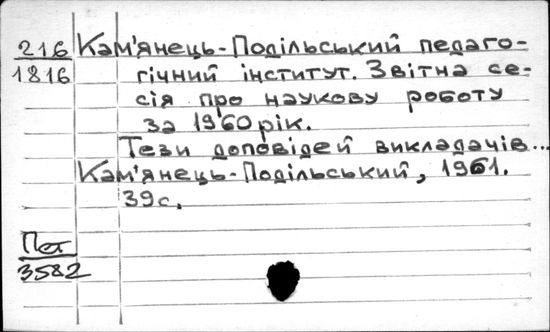 216 Кам'янець-Подільський педаго-
1816 гічний інститут. Звітна се-
сія про наукову роботу
за 1960 рік.
Тези доповідей викладачів...
Кам'янець-Подільський, 1961.
39с.
Пет
3582